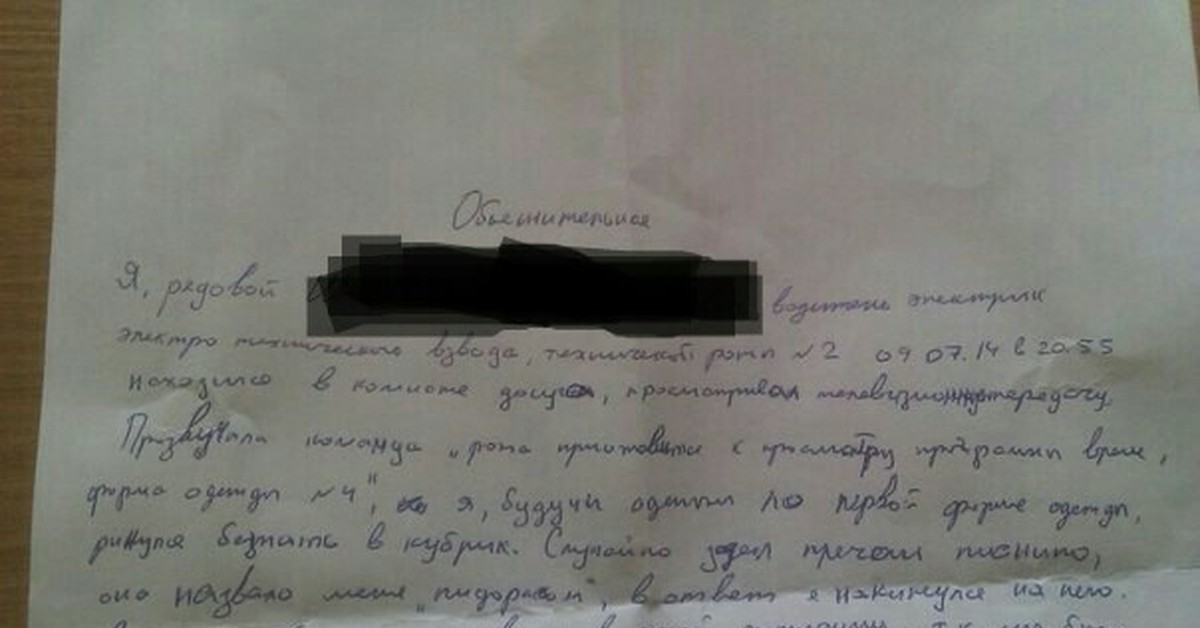 Объеснительная
Я, рядовой водитель электрик
электро технического взвода, технической роты №2 09 07.14 в 20.55
находился в комнате досуга, просматривал телевизионную передачу.
Прозвучала команда „рота приготовится к просмотру программы время,
форма одежды №4", я, будучи одетым по первой форме одежды,
ринулся бежать в кубрик. Случайно задел плечом пианино,
оно назвало меня „пидорасом", в ответ я накинулся на него.